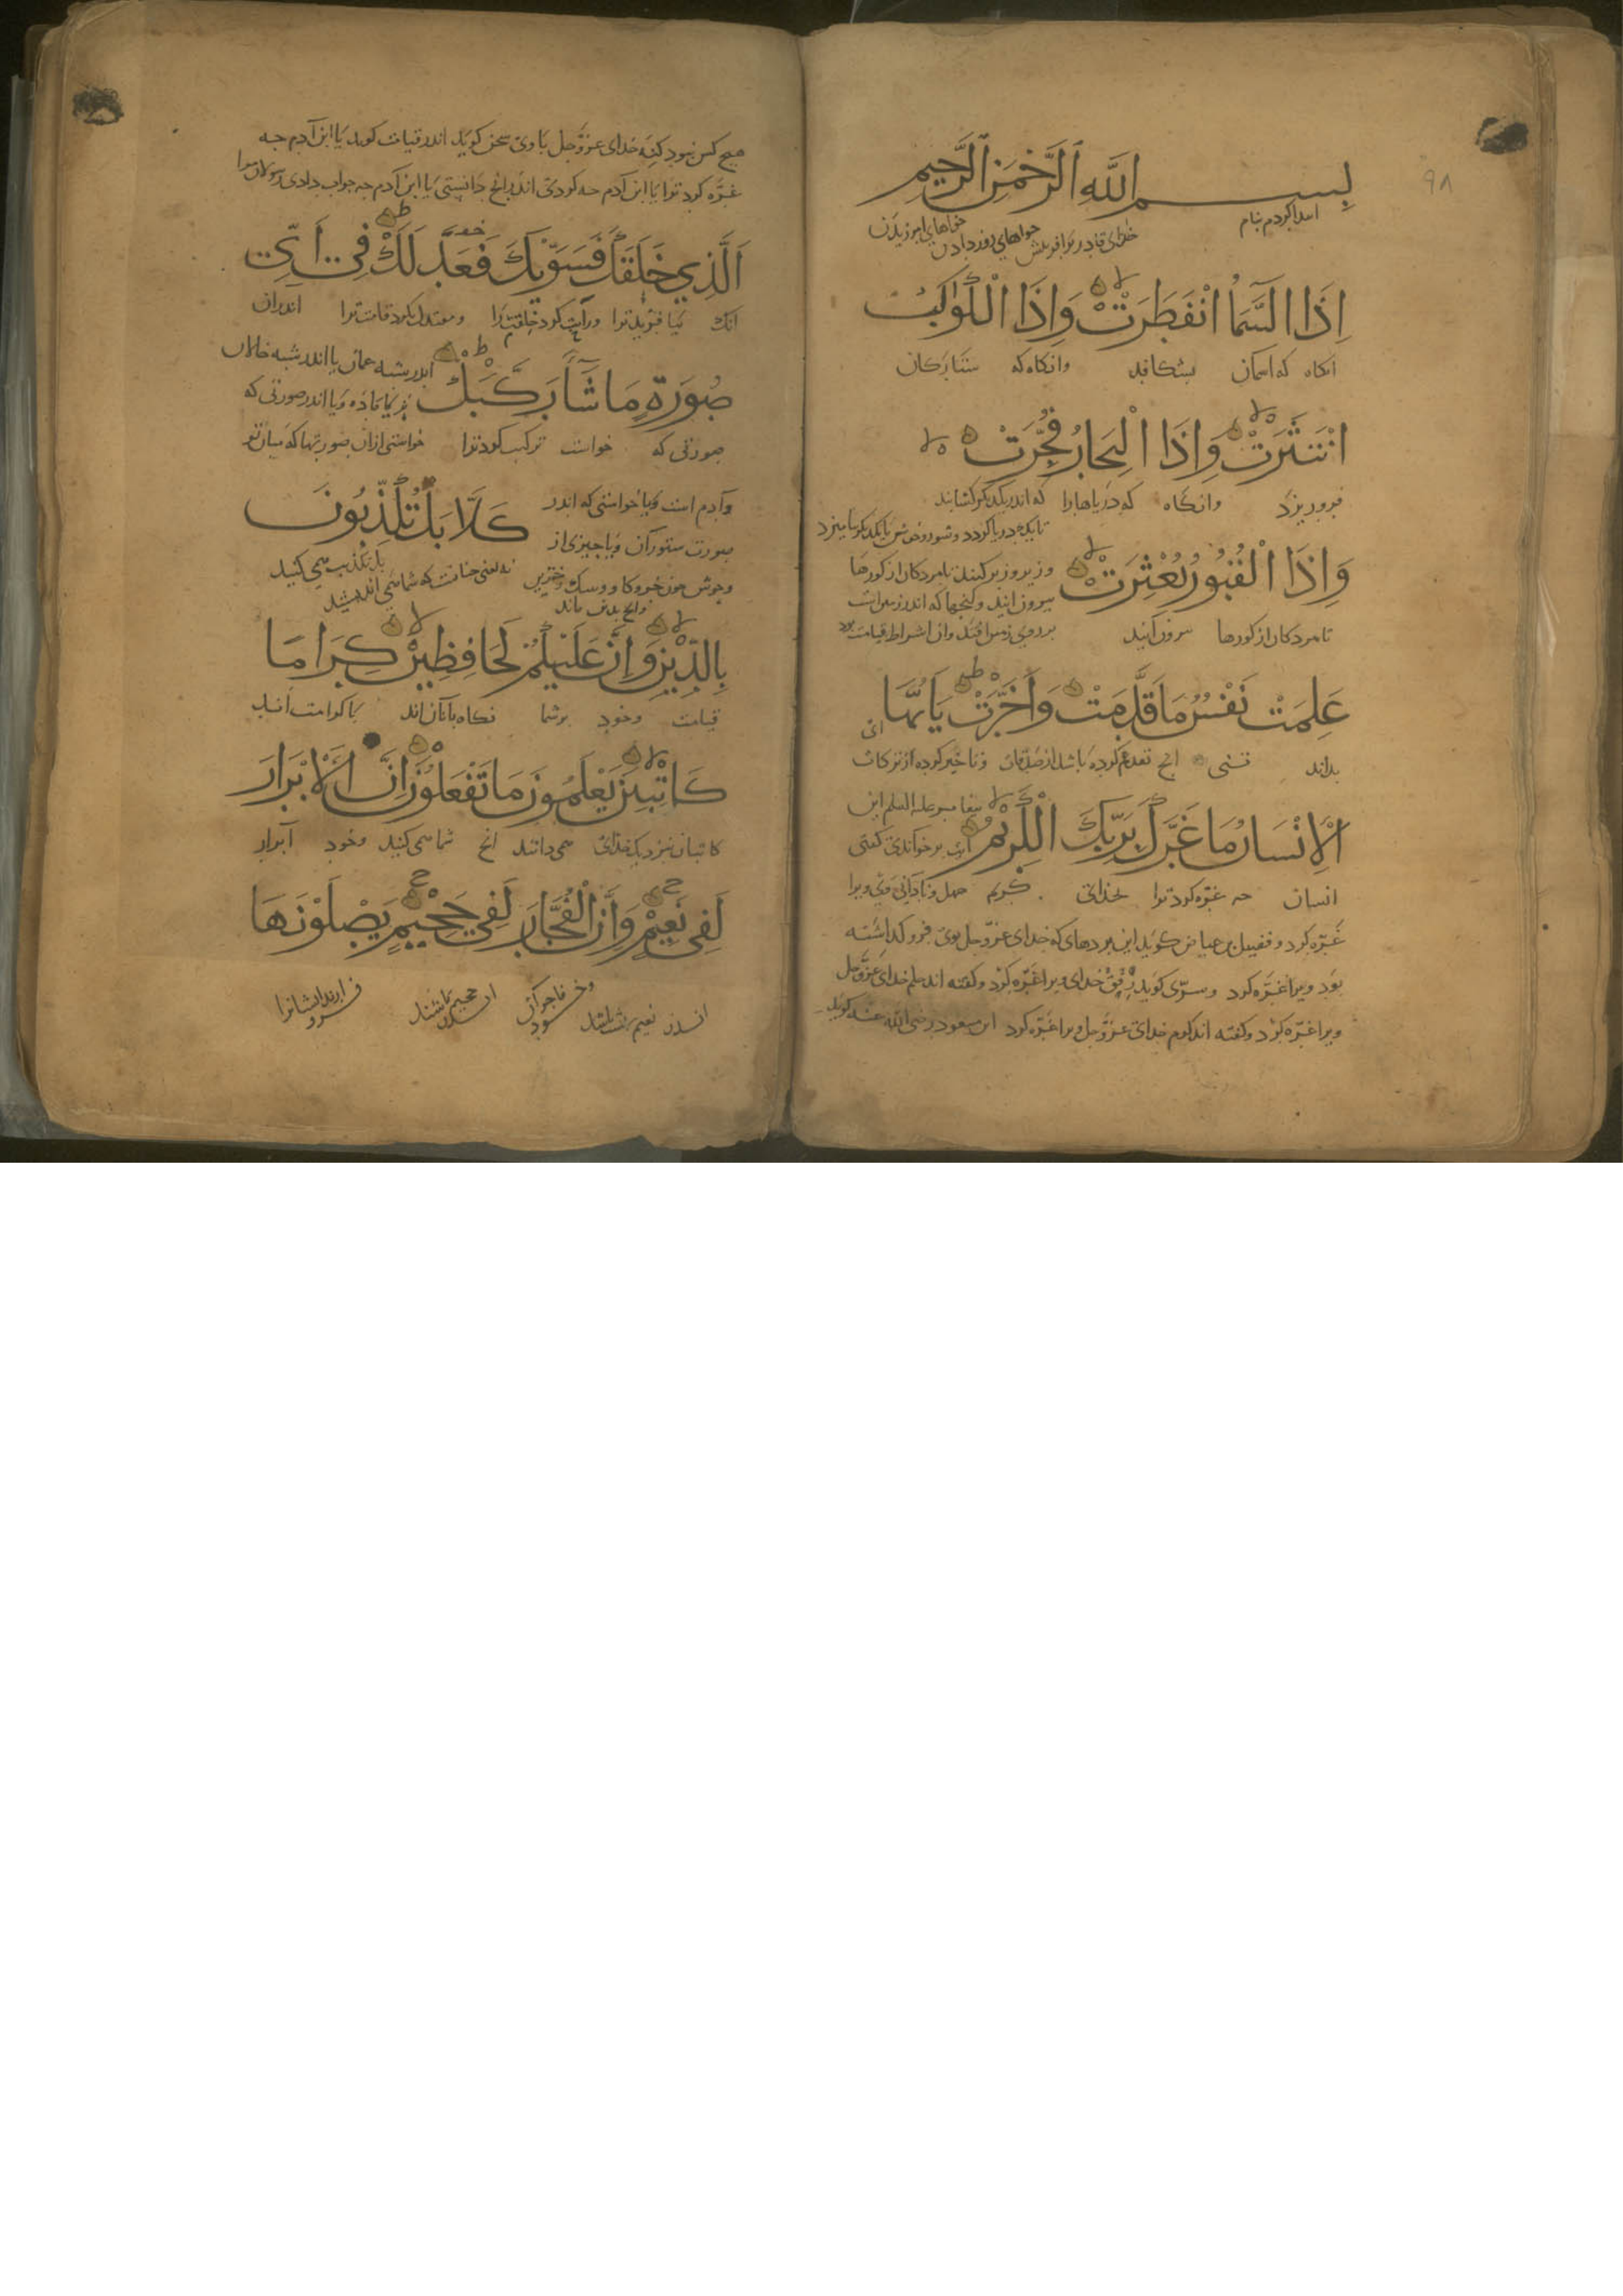 ٩٨
بِسْمِ اللَّهِ الرَّحْمَنِ الرَّحِيمِ
ابتدا کردم بنام خدای قادر بر آفریدن خواهای روزی دادن خواهای آمرزیدن
إِذَا السَّمَاءُ انْفَطَرَتْ وَإِذَا الْكَوَاكِبُ
انکاه که آسمان بشکافد وانکاه که ستارکان
انْتَثَرَتْ وَإِذَا الْبِحَارُ فُجِّرَتْ
فروریزد وانکاه که دریاهارا که اندر یکدیکر کشایند
تا یک دریا کردد و شور و خوش با یکدیکر بیامیزد
وَإِذَا الْقُبُورُ بُعْثِرَتْ
و زیر و زبر کنند تا مردکان از کورها
بیرون آیند و کنجها که اندر زمین است
تا مردکان از کورها بیرون آیند بر روی زمین افتد و از اشراط قیامت بود
عَلِمَتْ نَفْسٌ مَا قَدَّمَتْ وَأَخَّرَتْ يَا أَيُّهَا
بداند تنی انچ تقدیم کرده باشد از صدقات و تاخیر کرده از ترکات
الْإِنْسَانُ مَا غَرَّكَ بِرَبِّكَ الْكَرِيمِ
پیغامبر علیه السلم این
آیت برخواندی کفتی
انسان چه غره کرد ترا بخدای کریم جهل و نادانی وی ویرا
غرّه کرد و فضیل بن عیاض کوید این پردهای که خدای عزّوجل بوی فروکذاشته
بود ویرا غرّه کرد و سرّی کوید رفق خدای ویرا غرّه کرد و کفته اند حلم خدای عزّوجل
ویرا غرّه کرد و کفته اند کرم خدای عزّوجل ویرا غرّه کرد ابن مسعود رضی الله عنه کوید
هیچ کس نبود که نه خدای عزّوجل با وی سخن کوید اندر قیامت کوید یا ابن آدم چه
غرّه کرد ترا یا ابن آدم چه کردی اندر انچ دانستی یا ابن آدم چه جواب دادی رسولان مرا
الَّذِي خَلَقَكَ فَسَوَّيكَ فَعَدَلَكَ فِي أَيِّ
انک بیافرید ترا و راست کرد خلقت ترا و معتدل بکرد قامت ترا اندران
صُورَةٍ مَا شَاءَ رَكَّبَكَ
اندر شبه عمان یا اندر شبه خالان
نرینه یا ماده و یا اندر صورتی که
صورتی که خواست ترکیب کرد ترا خواستی ازان صورتها که میان تو
و آدم است و یا خواستی که اندر
كَلَّا بَلْ تُكَذِّبُونَ
صورت ستوران و یا چیزی از
وحوش چون خر و کاو و سک و خنزیر
و انچ بدین ماند
نه یعنی چنانست که شما می اندیشید
بل تکذیب می کنید
بِالدِّينِ وَإِنَّ عَلَيْكُمْ لَحَافِظِينَ كِرَامًا
قیامت وخود برشما نکاه بانان اند با کرامت اند
كَاتِبِينَ يَعْلَمُونَ مَا تَفْعَلُونَ إِنَّ الْأَبْرَارَ
کاتبان نزدیک خدای می دانند انچ شما می کنید وخود ابرار
لَفِي نَعِيمٍ وَإِنَّ الْفُجَّارَ لَفِي جَحِيمٍ يَصْلَوْنَهَا
اندر نعیم باشند وخود فاجران اندر جحیم باشند فرو آرند ایشانرا